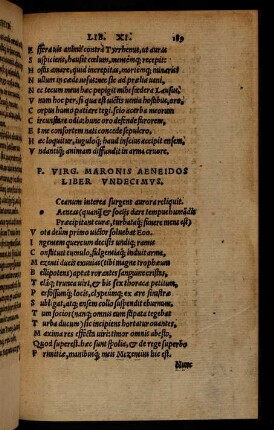 LIB. XI. 189
E ffera uis animi contrà Tyrrhenus, ut auras
S uspiciens, hausit cœlum, mentemq; recepit:
H ostis amare, quid increpitas, mortemq; minaris?
N ullum in cæde nefas: nec sic ad prælia ueni,
N ec tecum meus hæc pepigit mihi fœdera Lausus.
V num hoc per, si qua est uictis uenia hostibus, oro,
C orpus humo patiare tegi: scio acerba meorum
C ircunstare odia: hunc oro defende furorem,
E t me consortem nati concede sepulcro.
H æc loquitur, iuguloq; haud inscius accipit ensem,
V ndantiq; animam diffundit in arma cruore.
P. VIRG. MARONIS AENEIDOS
LIBER VNDECIMVS.
Oceanum interea surgens aurora reliquit.
Aeneas (quanq̃ & socijs dare tempus humandis
Præcipitant curæ, turbataq; funere mens est)
V ota deûm primo uictor soluebat Eoo.
I ngentem quercum decisis undiq; ramis
C onstituit tumulo, fulgentiaq; induit arma,
M ezenti ducis exuuias (tibi magne trophæum
B ellipotens) aptat rorantes sanguine cristas,
T elaq; trunca uiri, & bis sex thoraca petitum,
P erfossumq; locis, clypeumq; ex ære sinistræ
S ubligat, atq; ensem collo suspendit eburnum.
T um socios (nanq; omnis eum stipata tegebat
T urba ducum) sic incipiens hortatur ouantes,
M axima res effecta uiri: timor omnis abesto,
Q uod superest. hæc sunt spolia, & de rege superbo
P rimitiæ, manibusq; meis Mezenius hic est.
Nunc